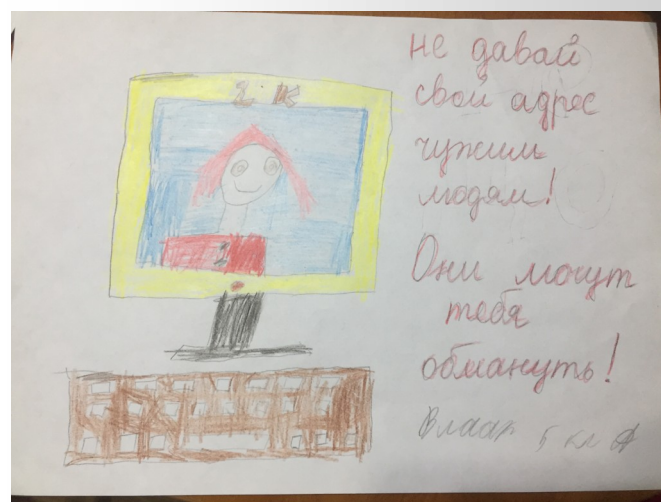 1 К
1
не давай
свой адрес
чужим
людям!
Они могут
тебя
обмануть!
5 кл А